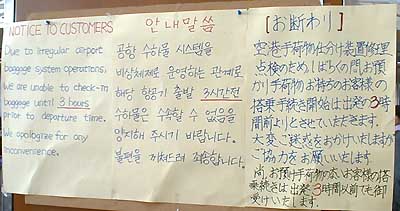 NOTICE TO CUSTOMERS
Due to irregular airport
baggage system operations,
We are unable to check-in
baggage until 3 hours
prior to departure time.
We apologize for any
inconvenience.
안내말씀
공항 수하물 시스템을
비상체제로 운영하는 관계로
해당 항공기 출발 3시간전
수하물은 수속할 수 없음을
양지해 주시기 바랍니다.
불편을 끼쳐드려 죄송합니다.
[お断わり]
空港手荷物仕分け装置修理
点検のため、しばらくの間、お預
かり手荷物お持ちのお客様の
搭乗手続き開始は出発の3時
間前よりとさせていただきます。
大変ご迷惑をおかけいたしますが
ご協力をお願いいたします
尚、お預け手荷物のないお客様の搭
乗続きは、出発3時間以前でも御
受けいたします。